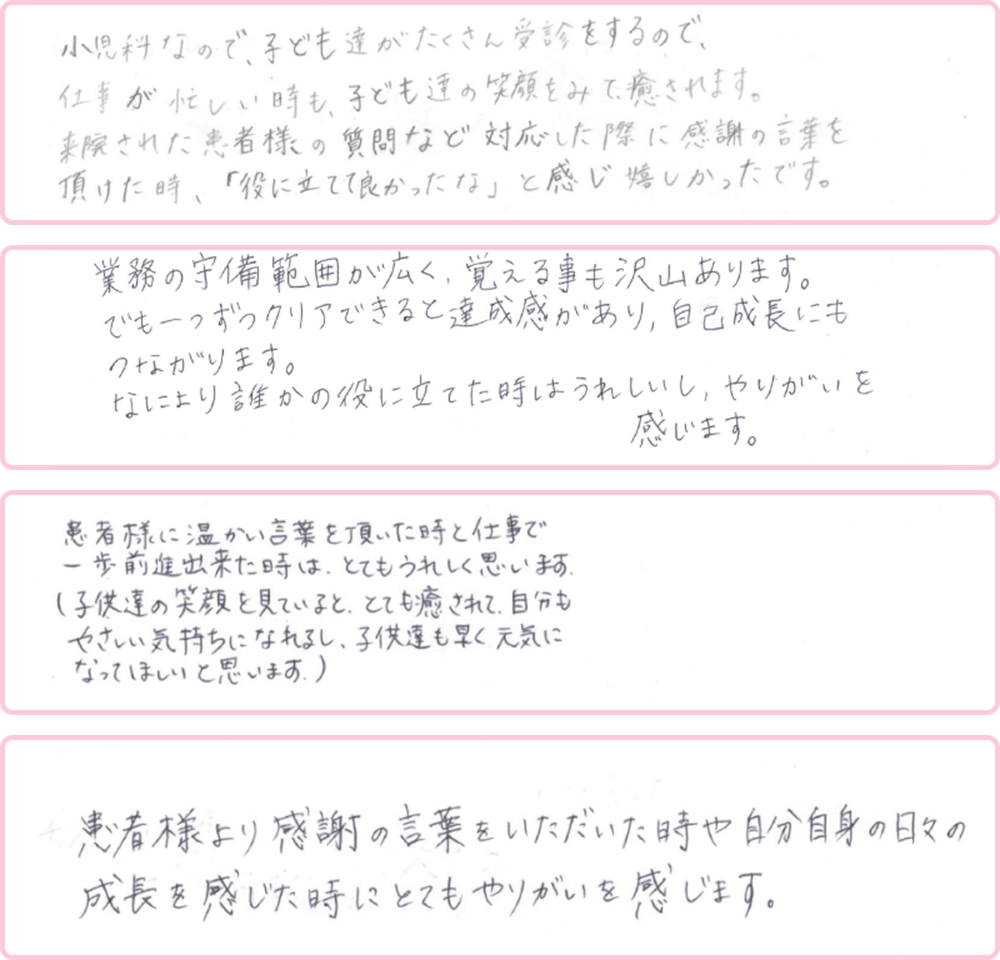 小児科なので、子ども達がたくさん受診をするので、
仕事が忙しい時も、子ども達の笑顔をみて癒されます。
来院された患者様の質問など対応した際に感謝の言葉を
頂けた時、「役に立てて良かったな」と感じ嬉しかったです。
業務の守備範囲が広く、覚える事も沢山あります。
でも一つずつクリアできると達成感があり、自己成長にも
つながります。
なにより誰かの役に立てた時はうれしいし、やりがいを
感じます。
患者様に温かい言葉を頂いた時と仕事で
一歩前進出来た時は、とてもうれしく思います。
(子供達の笑顔を見ていると、とても癒されて、自分も
やさしい気持ちになれるし、子供達も早く元気に
なってほしいと思います。)
患者様より感謝の言葉をいただいた時や自分自身の日々の
成長を感じた時にとてもやりがいを感じます。